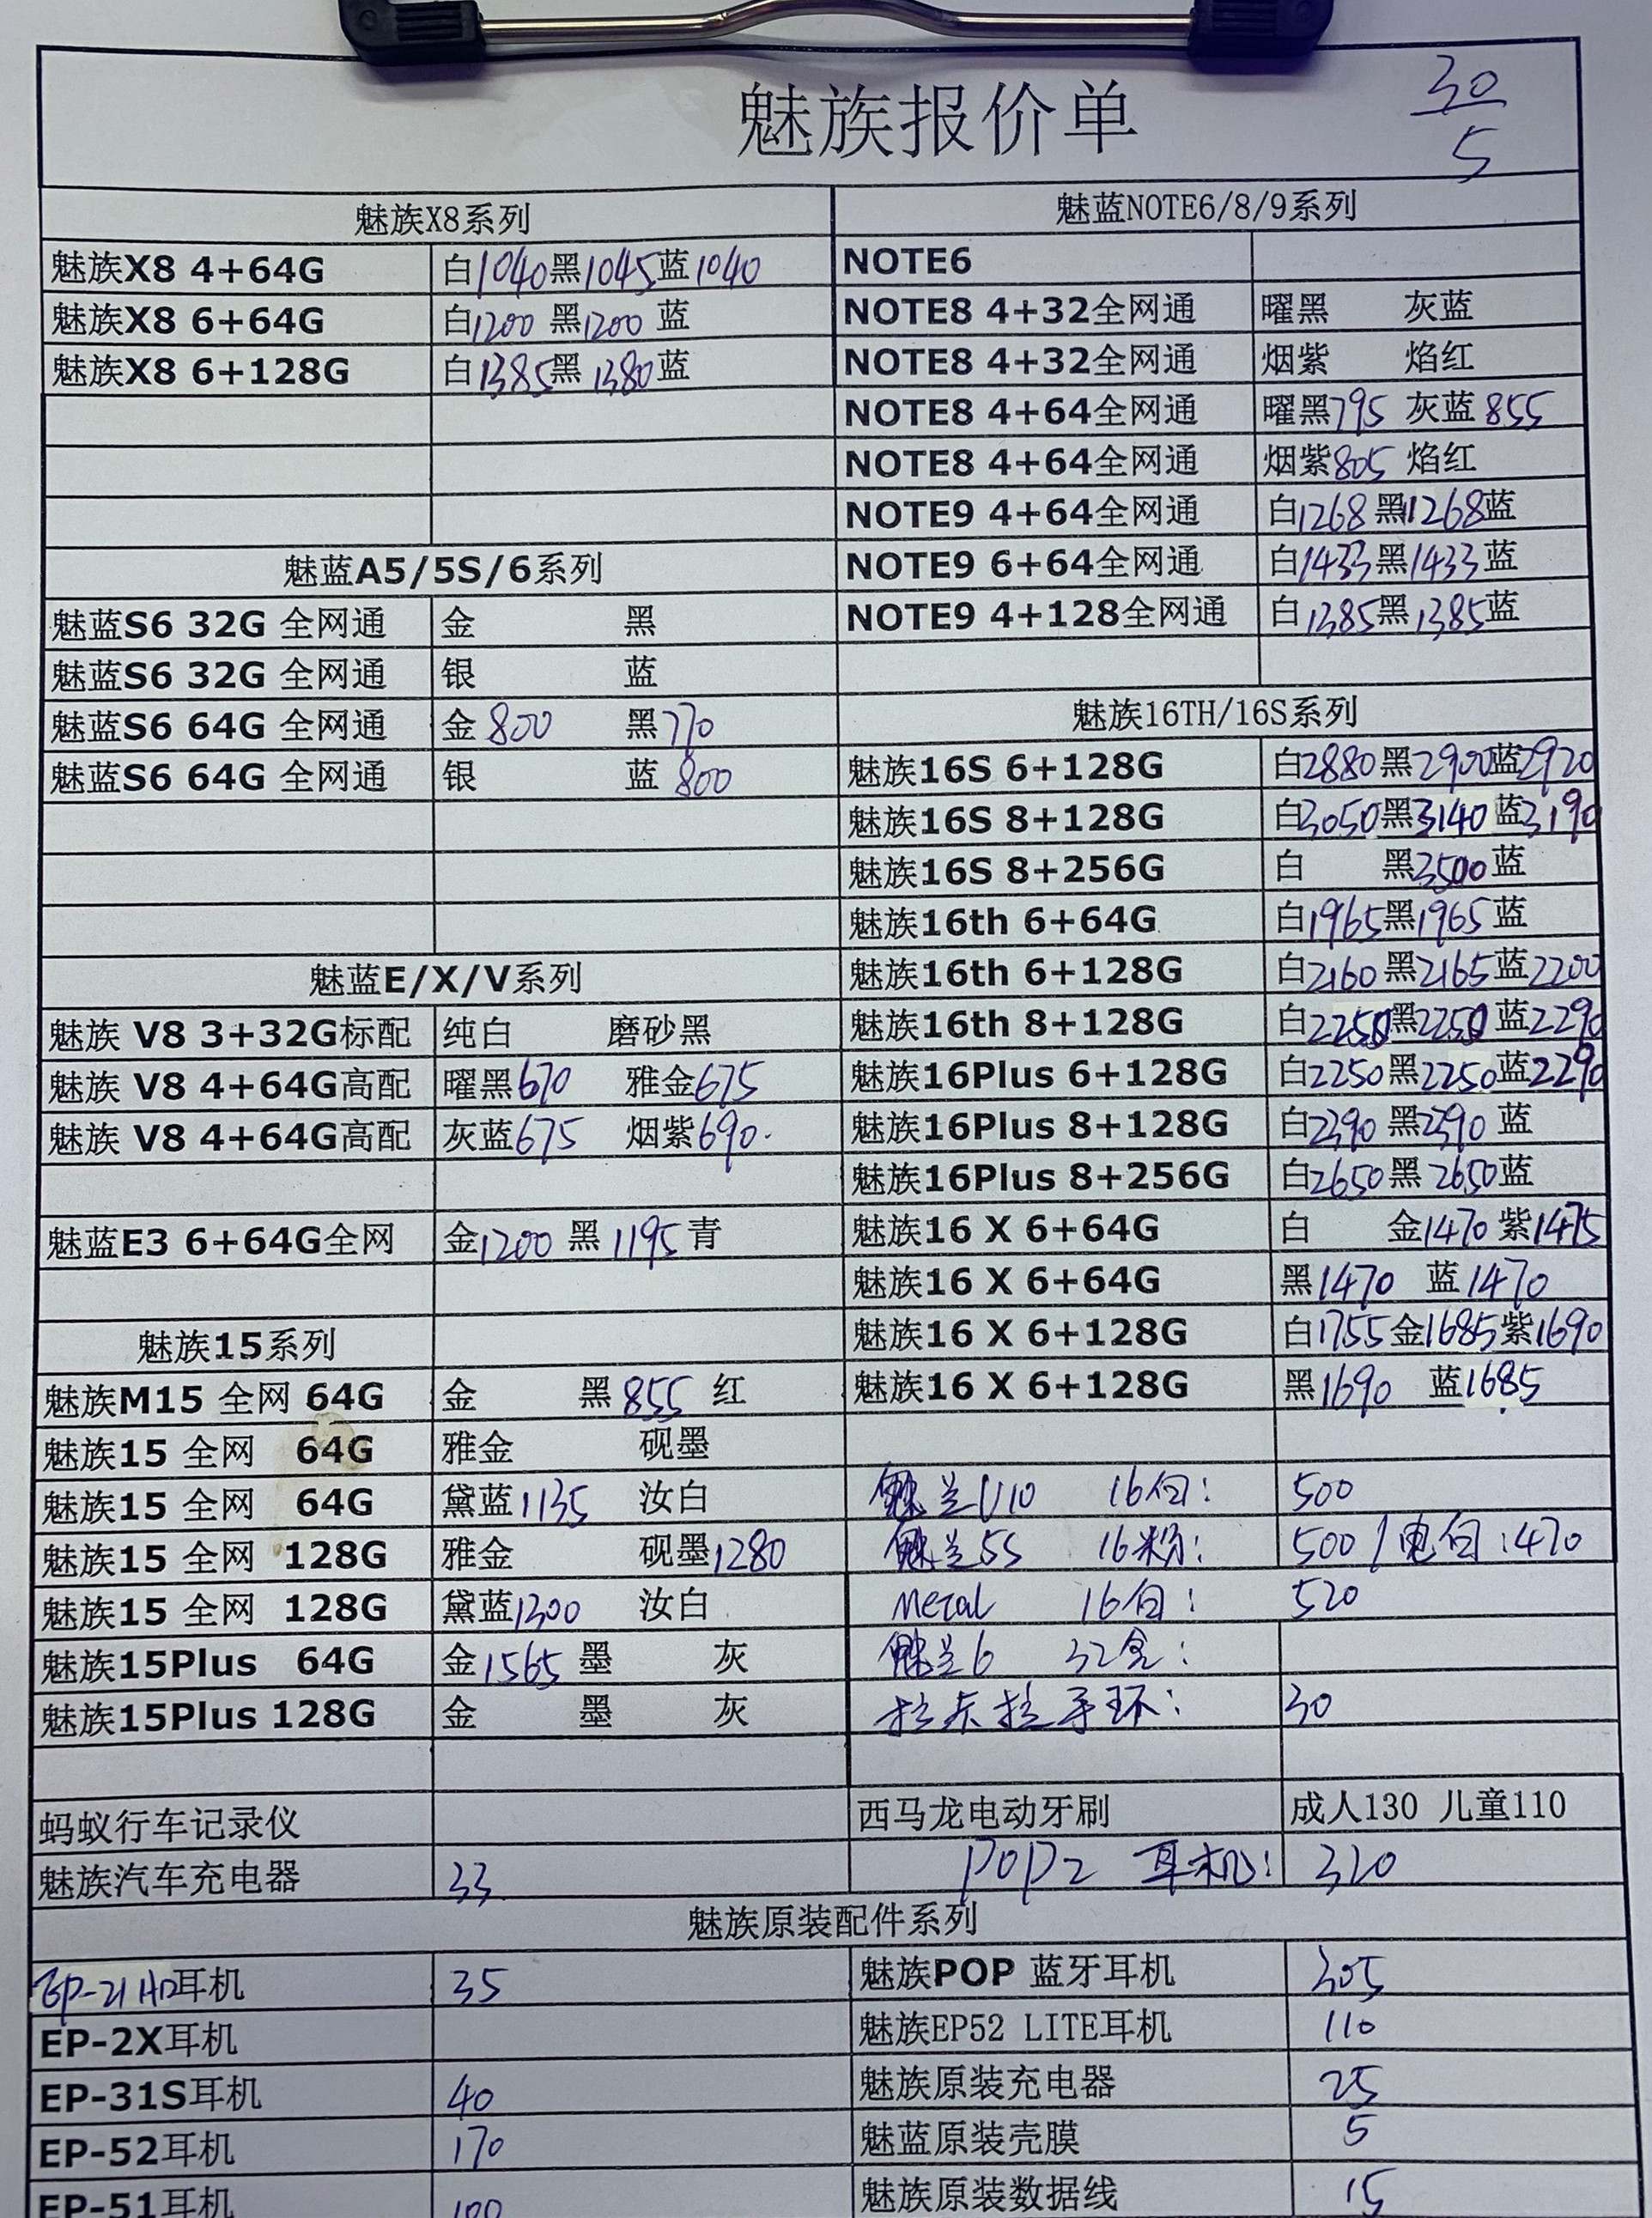 魅族报价单
30/5
魅族X8系列
魅族X8 4+64G 白1040黑1045蓝1040
魅族X8 6+64G 白1200 黑1200 蓝
魅族X8 6+128G 白1385黑1380蓝
魅蓝A5/5S/6系列
魅蓝S6 32G 全网通 金 黑
魅蓝S6 32G 全网通 银 蓝
魅蓝S6 64G 全网通 金800 黑770
魅蓝S6 64G 全网通 银 蓝800
魅蓝E/X/V系列
魅族 V8 3+32G标配 纯白 磨砂黑
魅族 V8 4+64G高配 曜黑670 雅金675
魅族 V8 4+64G高配 灰蓝675 烟紫690.
魅蓝E3 6+64G全网 金1200 黑1195青
魅族15系列
魅族M15 全网 64G 金 黑855 红
魅族15 全网 64G 雅金 砚墨
魅族15 全网 64G 黛蓝1135 汝白
魅族15 全网 128G 雅金 砚墨1280
魅族15 全网 128G 黛蓝1300 汝白
魅族15Plus 64G 金1565 墨 灰
魅族15Plus 128G 金 墨 灰
蚂蚁行车记录仪
魅族汽车充电器 33
魅蓝NOTE6/8/9系列
NOTE6
NOTE8 4+32全网通 曜黑 灰蓝
NOTE8 4+32全网通 烟紫 焰红
NOTE8 4+64全网通 曜黑795 灰蓝855
NOTE8 4+64全网通 烟紫805 焰红
NOTE9 4+64全网通 白1268黑1268蓝
NOTE9 6+64全网通 白1433黑1433蓝
NOTE9 4+128全网通 白1385黑1385蓝
魅族16TH/16S系列
魅族16S 6+128G 白2880黑2900蓝2920
魅族16S 8+128G 白3050黑3140蓝3190
魅族16S 8+256G 白 黑3500蓝
魅族16th 6+64G 白1965黑1965蓝
魅族16th 6+128G 白2160黑2165蓝2200
魅族16th 8+128G 白2250黑2250蓝2290
魅族16Plus 6+128G 白2250黑2250蓝2290
魅族16Plus 8+128G 白2390黑2390蓝
魅族16Plus 8+256G 白2650黑2650蓝
魅族16 X 6+64G 白 金1470紫1475
魅族16 X 6+64G 黑1470 蓝1470
魅族16 X 6+128G 白1755金1685紫1690
魅族16 X 6+128G 黑1690 蓝1685
魅兰U10 16白: 500
魅兰5S 16粉: 500/电白:470
Metal 16白: 520
魅兰6 32金:
拉卡拉手环: 30
西马龙电动牙刷 成人130 儿童110
POP2 耳机: 320
魅族原装配件系列
EP-21 HD耳机 35
EP-2X耳机
EP-31S耳机 40
EP-52耳机 170
EP-51耳机 100
魅族POP 蓝牙耳机 305
魅族EP52 LITE耳机 110
魅族原装充电器 25
魅蓝原装壳膜 5
魅族原装数据线 15